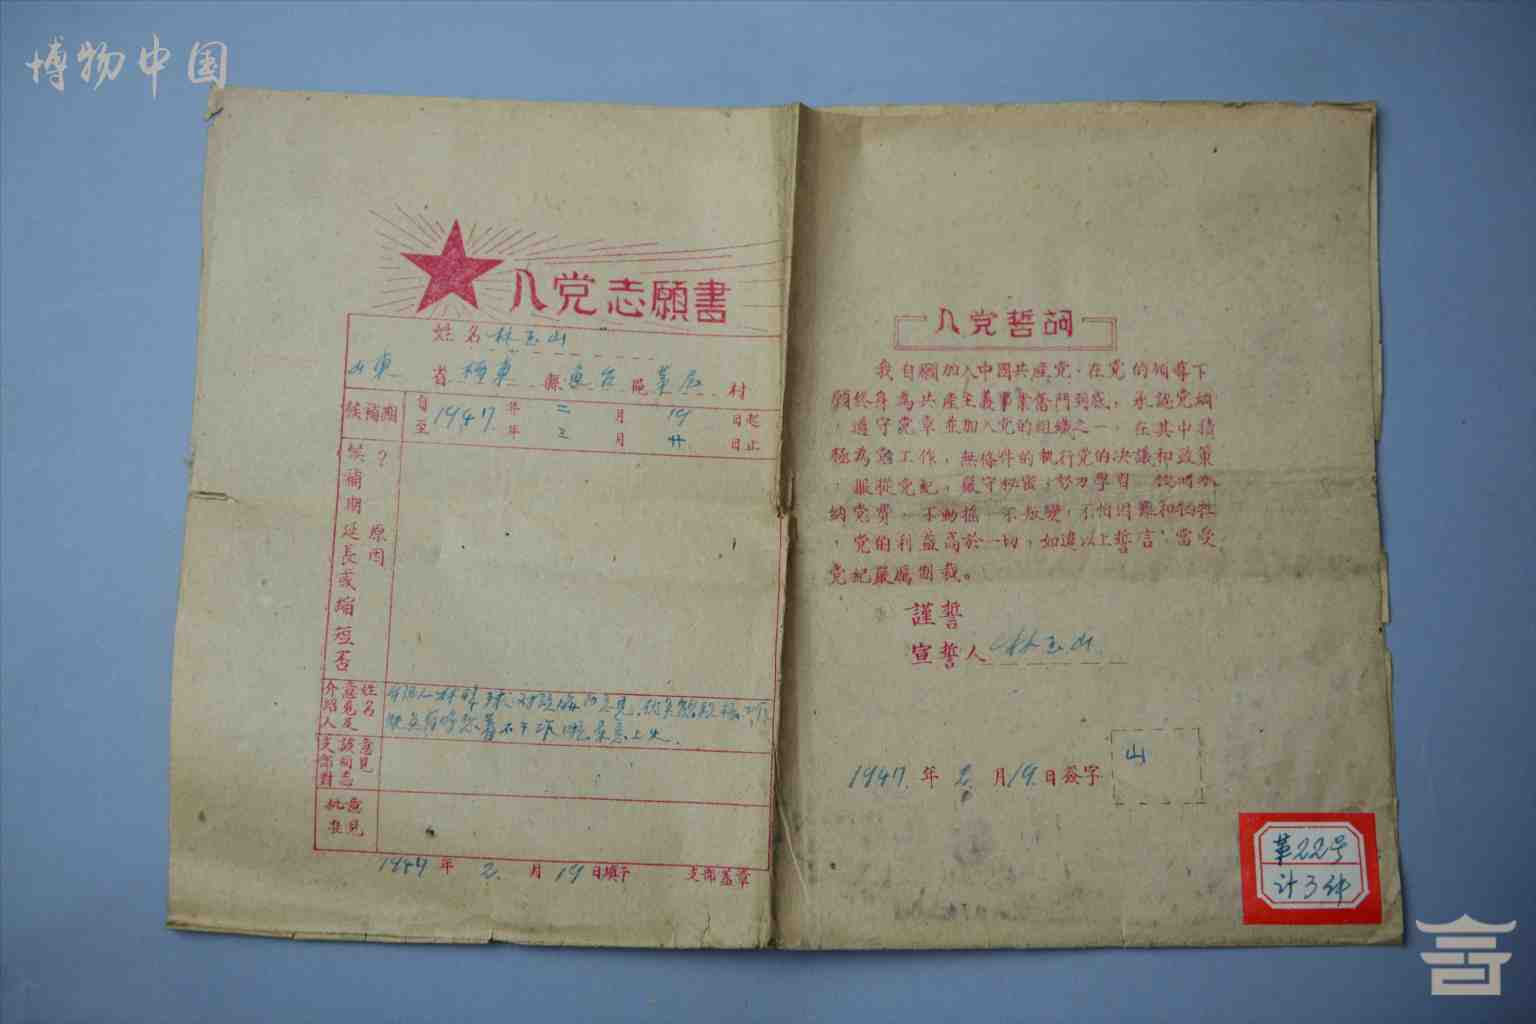 博物中国
入党志願書
姓名 林玉山
山東 省 栖東 縣 東台 區 村
候補期 自 1947 年 二 月 19 日起
至 年 三 月 廿 日止
候補期延長或縮短否？
原因
介紹人姓名及意見
支部對該同志意見
批准意見
1947 年 2 月 19 日填于 支部蓋章
入党誓詞
我自願加入中國共產党，在党的領導下
願終身為共產主義事業奮鬥到底，承認党綱
，遵守党章並加入党的組織之一，在其中積
極為党工作，無條件的執行党的决議和政策
，服從党紀，嚴守秘密，努力學習
納党費，不動搖，不叛變，不怕困難和犧牲
，党的利益高於一切，如違以上誓言，當受
党紀嚴厲制裁。
謹誓
宣誓人 林玉山
1947 年 2 月 19 日簽字
山
革22号
计3件